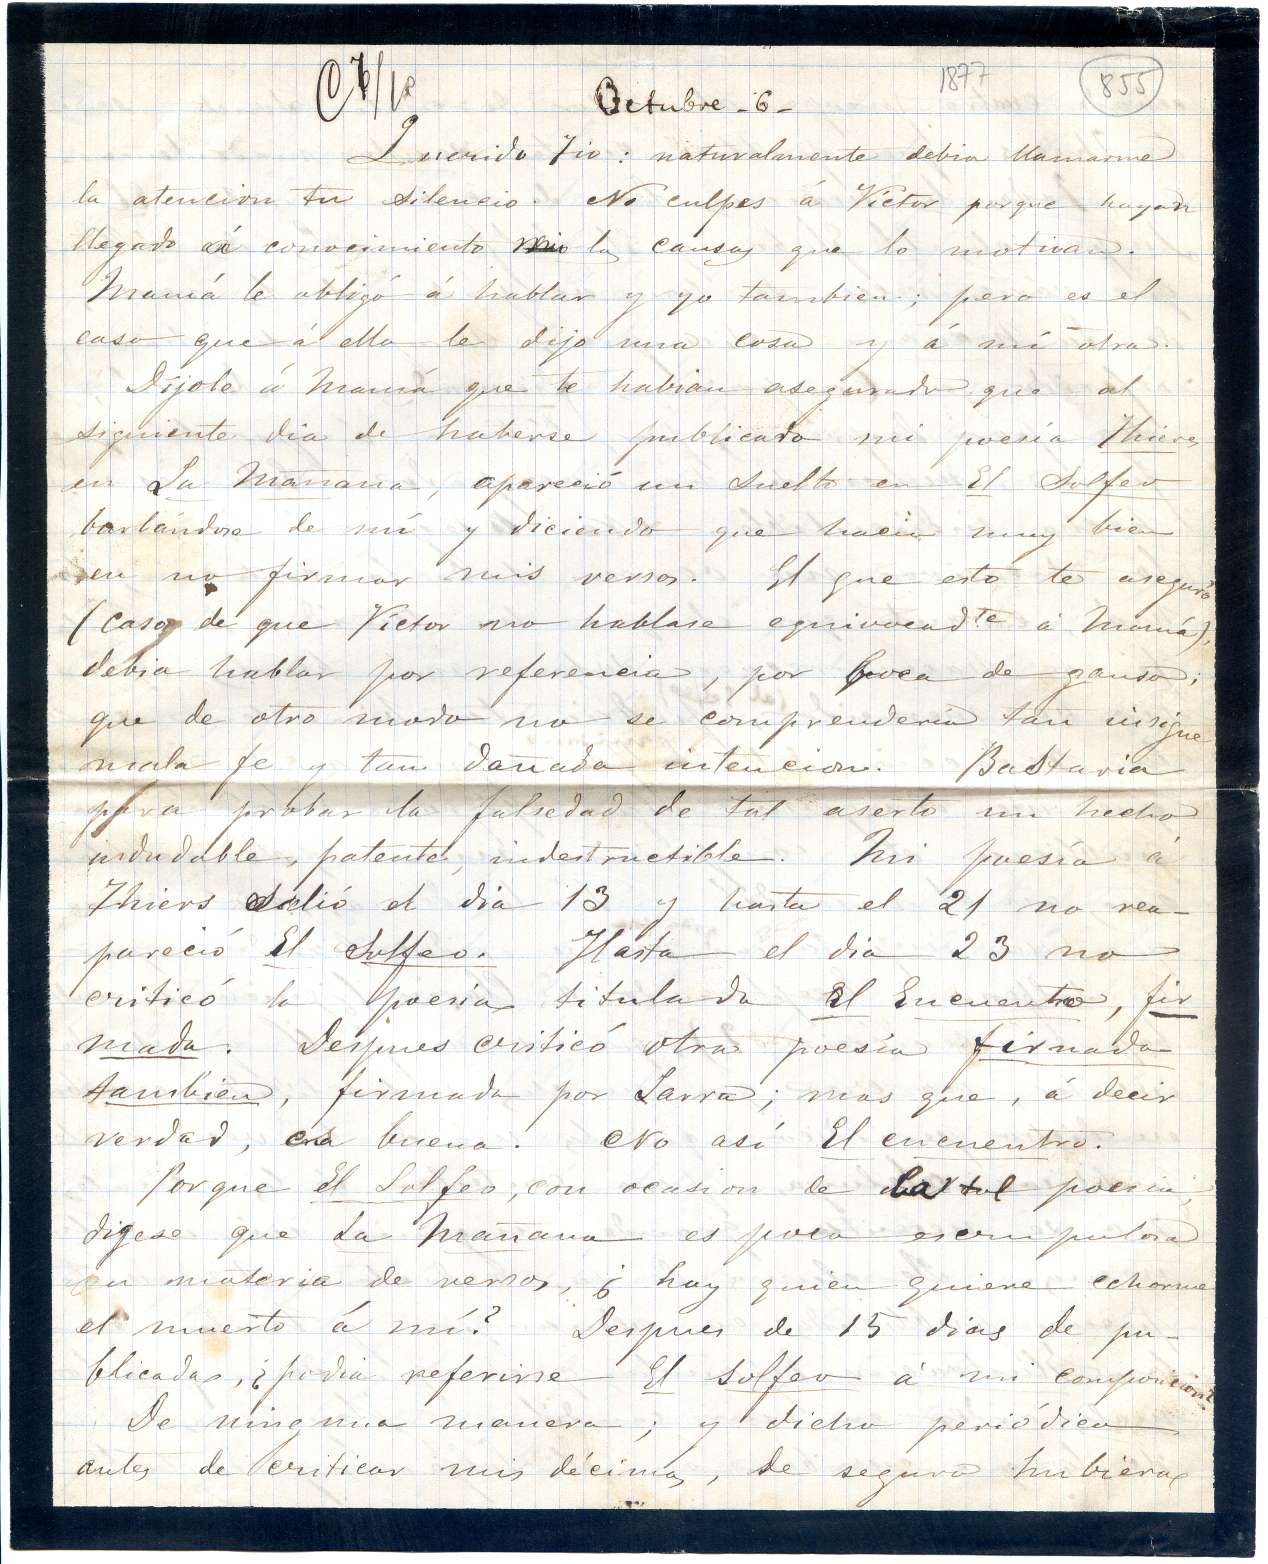 1877 855
Octubre - 6 -
Querido Tio: naturalmente debia llamarme
la atencion tu silencio. No culpes á Víctor porque hayan
llegado á conocimiento mio las causas que lo motivan.
Mamá le obligó á hablar y yo tambien; pero es el
caso que á ella le dijo una cosa y á mí otra.
Díjole á Mamá que te habian asegurado que al
siguiente dia de haberse publicado mi poesía Thiers
en La Mañana, apareció un suelto en El Solfeo
burlándose de mí y diciendo que hacia muy bien
en no firmar mis versos. El que esto te aseguró
(caso de que Víctor no hablase equivocadte á Mamá),
debia hablar por referencia, por boca de ganso;
que de otro modo no se comprenderia tan insigne
mala fe y tan dañada intencion. Bastaria
para probar la falsedad de tal aserto un hecho
indudable, patente, indestructible. Mi poesía á
Thiers salió el dia 13 y hasta el 21 no rea-
pareció El Solfeo. Hasta el dia 23 no
criticó la poesía titulada El Encuentro, fir
mada. Despues criticó otra poesía firmada
tambien, firmada por Larra; mas que, á decir
verdad, era buena. No así El encuentro.
Porque El Solfeo, con ocasion de la tal poesia,
digese que La Mañana es poco escrupulosa
en materia de versos, ¿hay quien quiere echarme
el muerto á mí? Despues de 15 dias de pu-
blicadas, ¿podia referirse El Solfeo á mi composicion?
De ninguna manera; y dicho periódico
antes de criticar mis décimas, de seguro hubiera